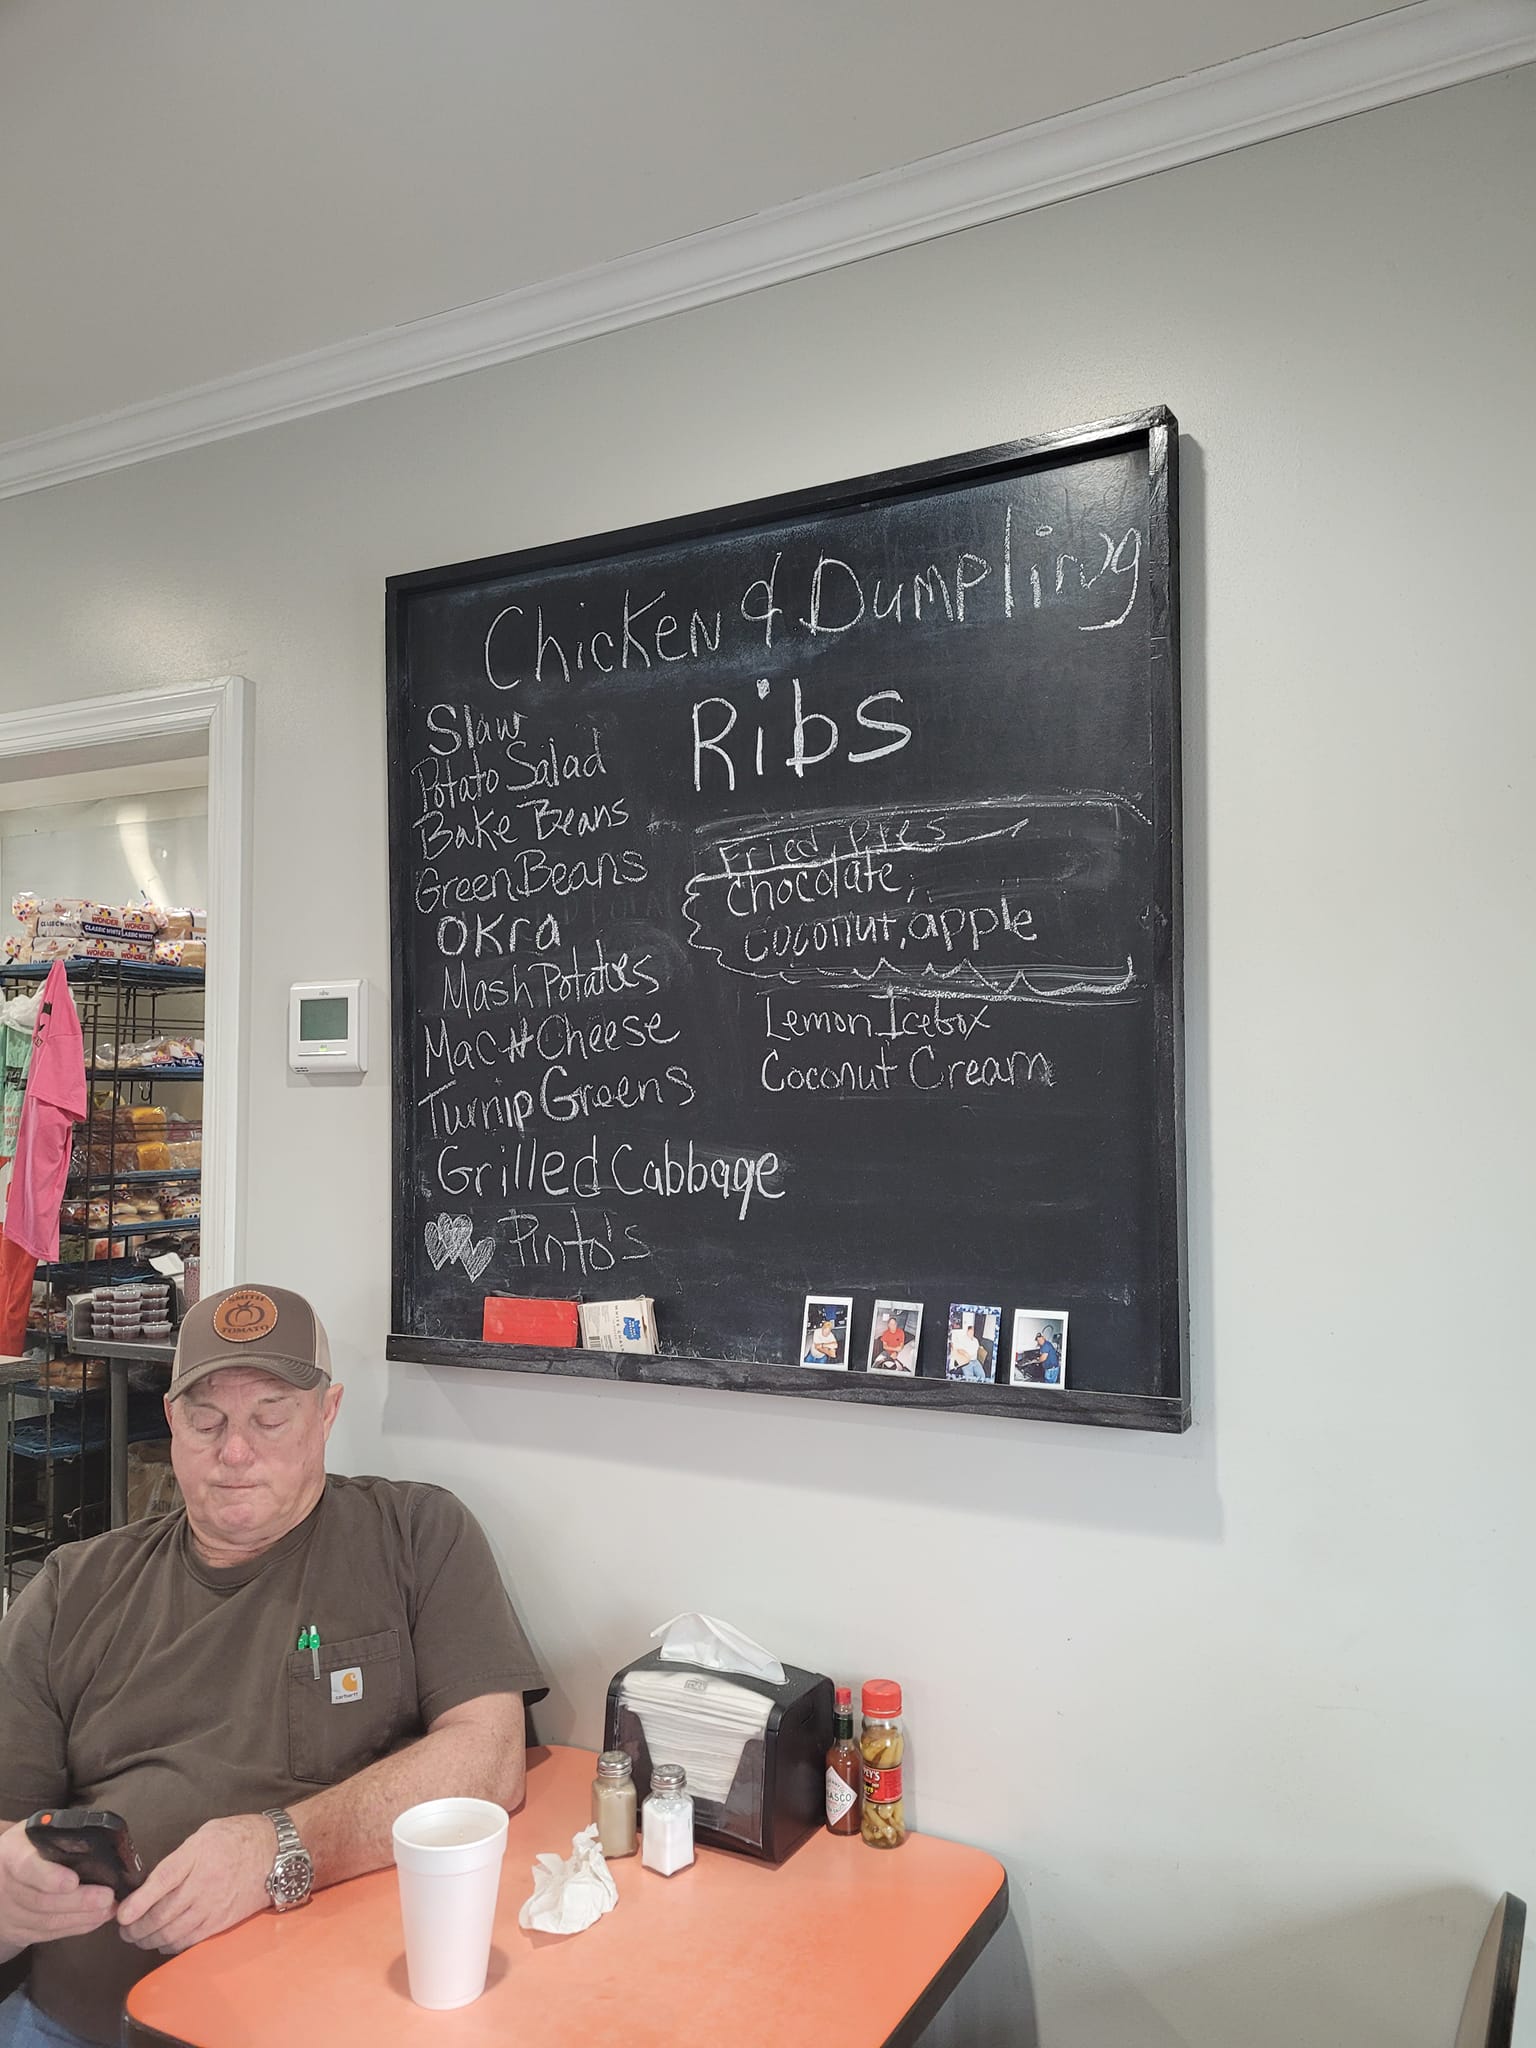 Chicken & Dumpling
Ribs
Slaw
Potato Salad
Bake Beans
Green Beans
OKra
Mash Potatoes
Mac # Cheese
Turnip Greens
Grilled Cabbage
Pinto's
Fried Pies
chocolate,
coconut, apple
Lemon Icebox
Coconut Cream
WONDER
CLASSIC WHITE
WONDER
CLASSIC WHITE
SMITH
TOMATO
carhartt